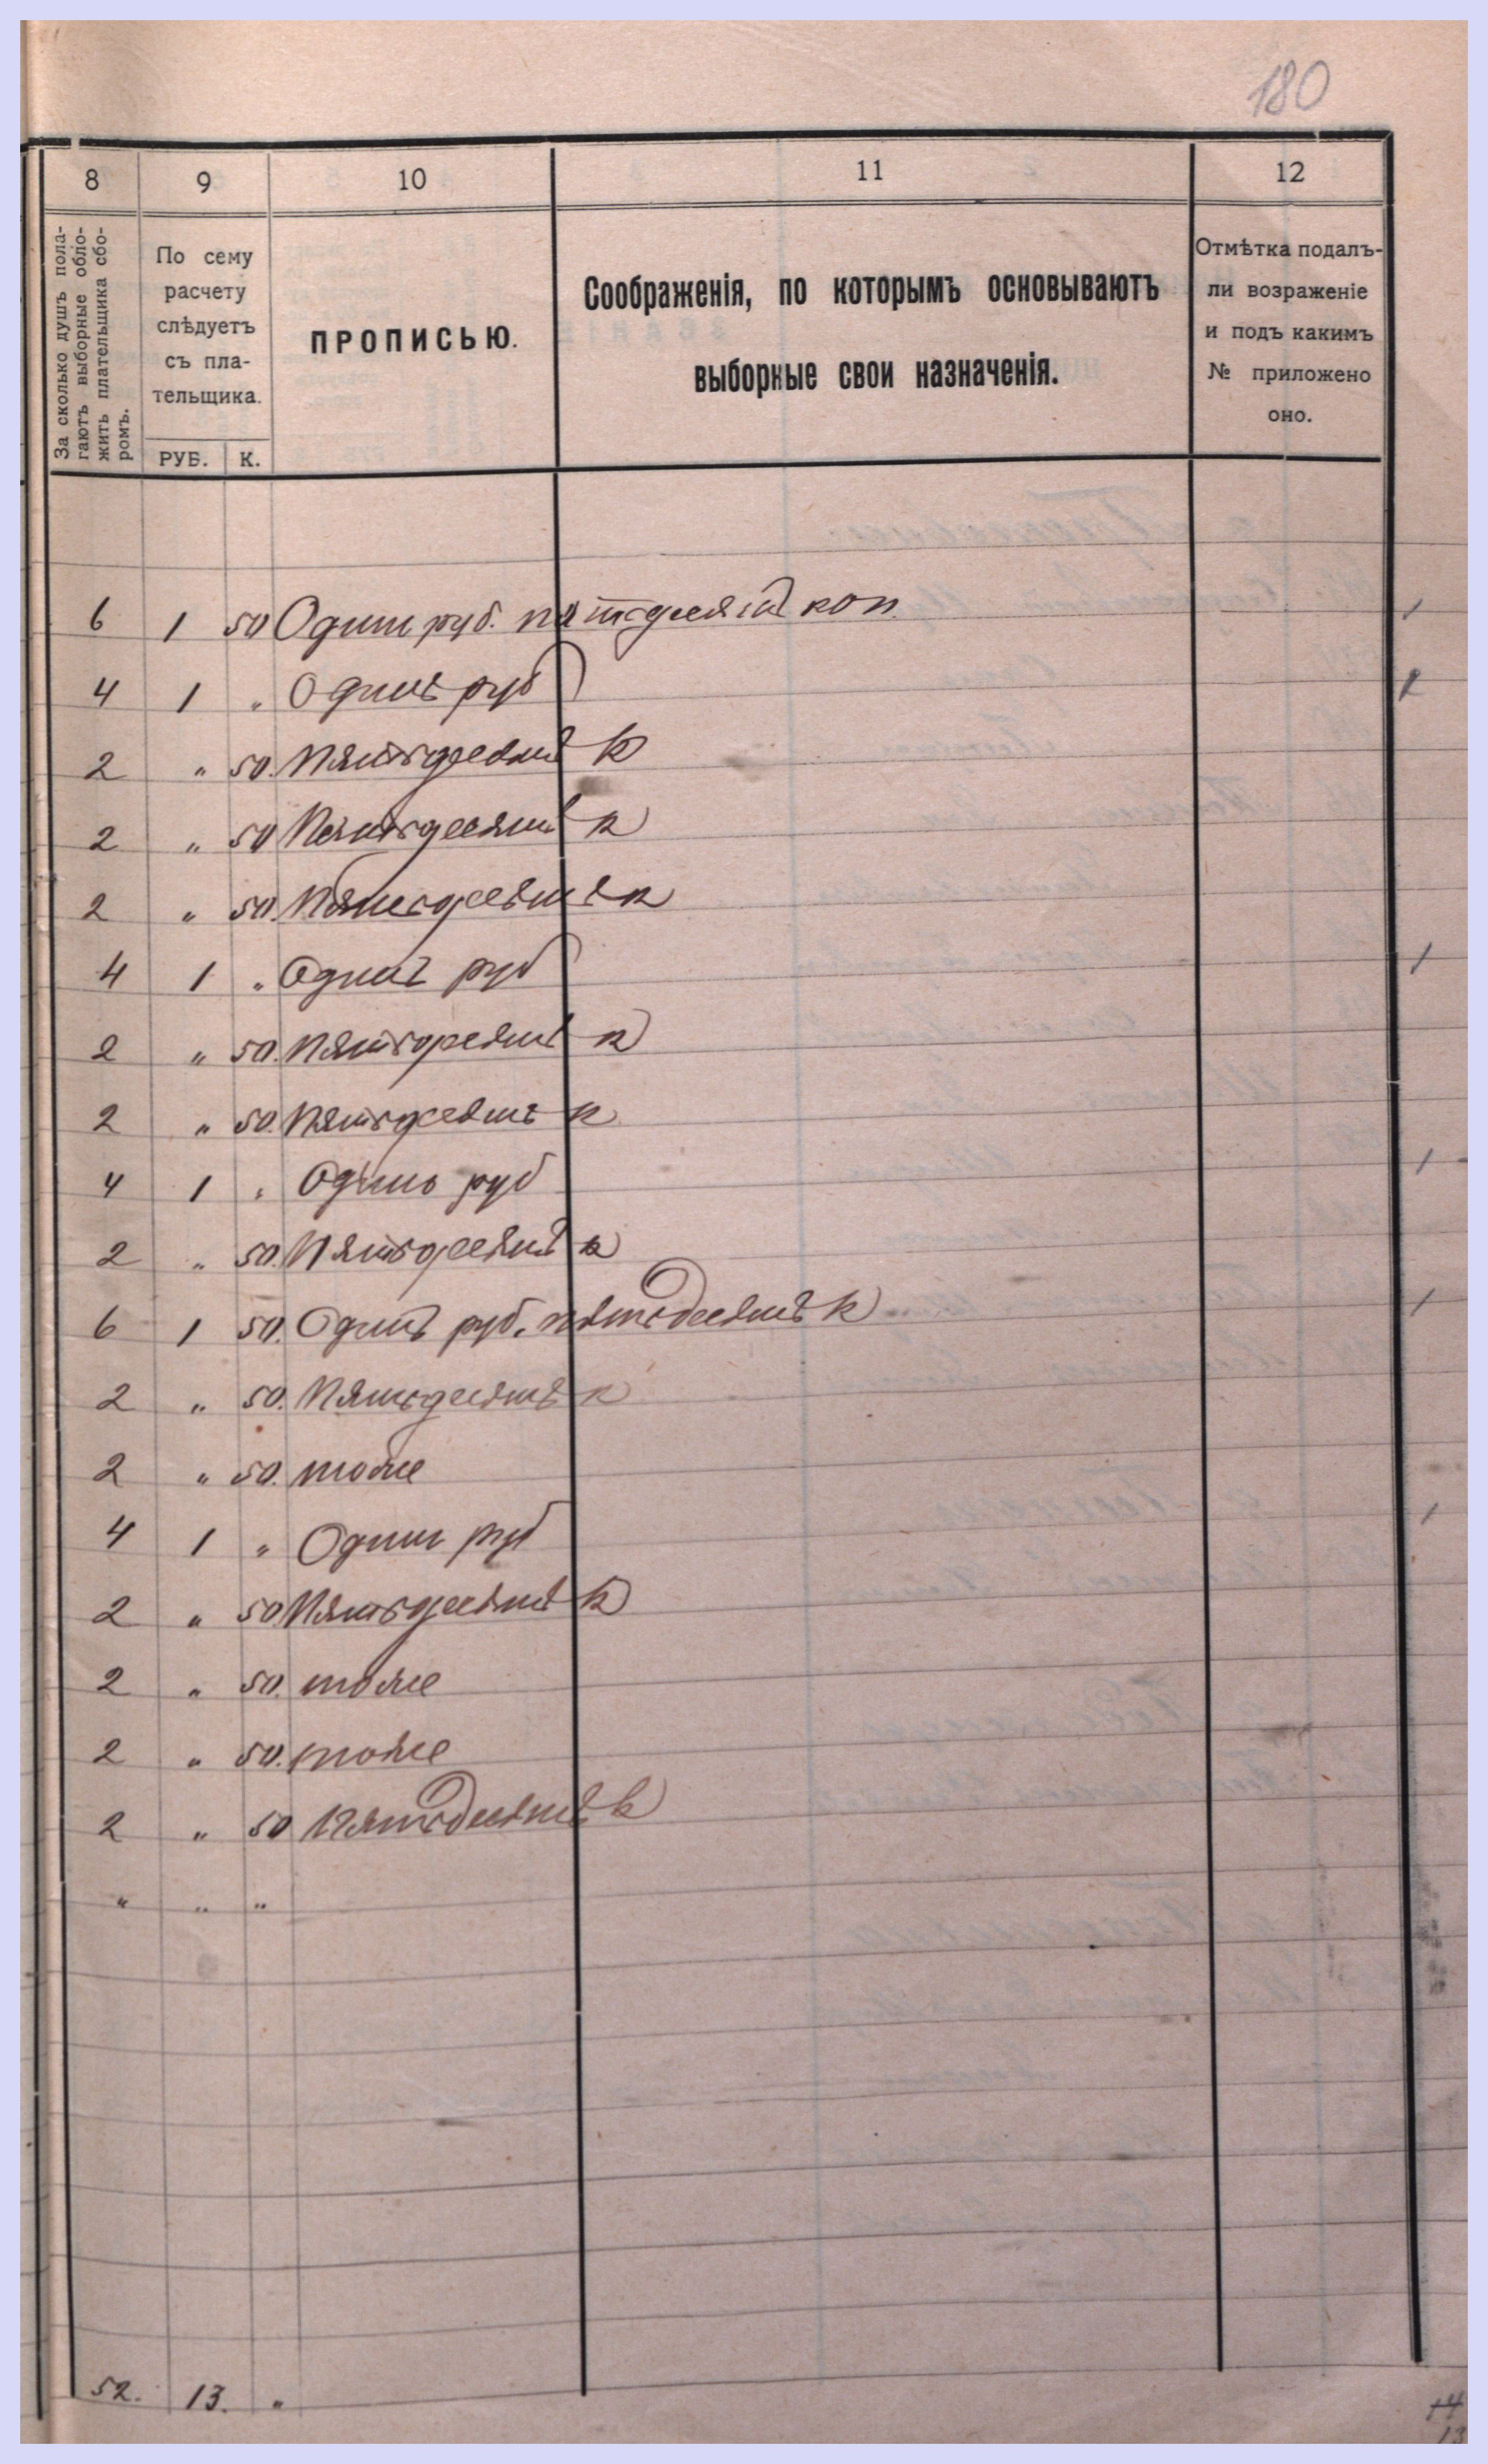 180
8 9 10 11 12
За сколько душъ пола-
гаютъ выборные обло-
жить плательщика сбо-
ромъ.
По сему
расчету
слѣдуетъ
съ пла-
тельщика.
РУБ. К.
ПРОПИСЬЮ.
Соображенія, по которымъ основываютъ
выборные свои назначенія.
Отмѣтка подалъ-
ли возраженіе
и подъ какимъ
№ приложено
оно.
6 1 50 Один руб. пятьдесятъ коп. 1
4 1 „ Одинъ руб 1
2 „ 50. Пятьдесятъ к
2 „ 50 Пятьдесятъ к
2 „ 50. Пятьдесятъ к
4 1 „ Одинъ руб 1
2 „ 50. Пятьдесятъ к
2 „ 50. Пятьдесятъ к
4 1 „ Одинъ руб 1
2 „ 50. Пятьдесятъ к
6 1 50. Одинъ руб. пятьдесятъ к 1
2 „ 50. Пятьдесятъ к
2 „ 50. тоже
4 1 „ Один руб 1
2 „ 50 Пятьдесятъ к
2 „ 50. тоже
2 „ 50. тоже
2 „ 50 Пятьдесятъ к
„ „ „
52. 13. „
14
13